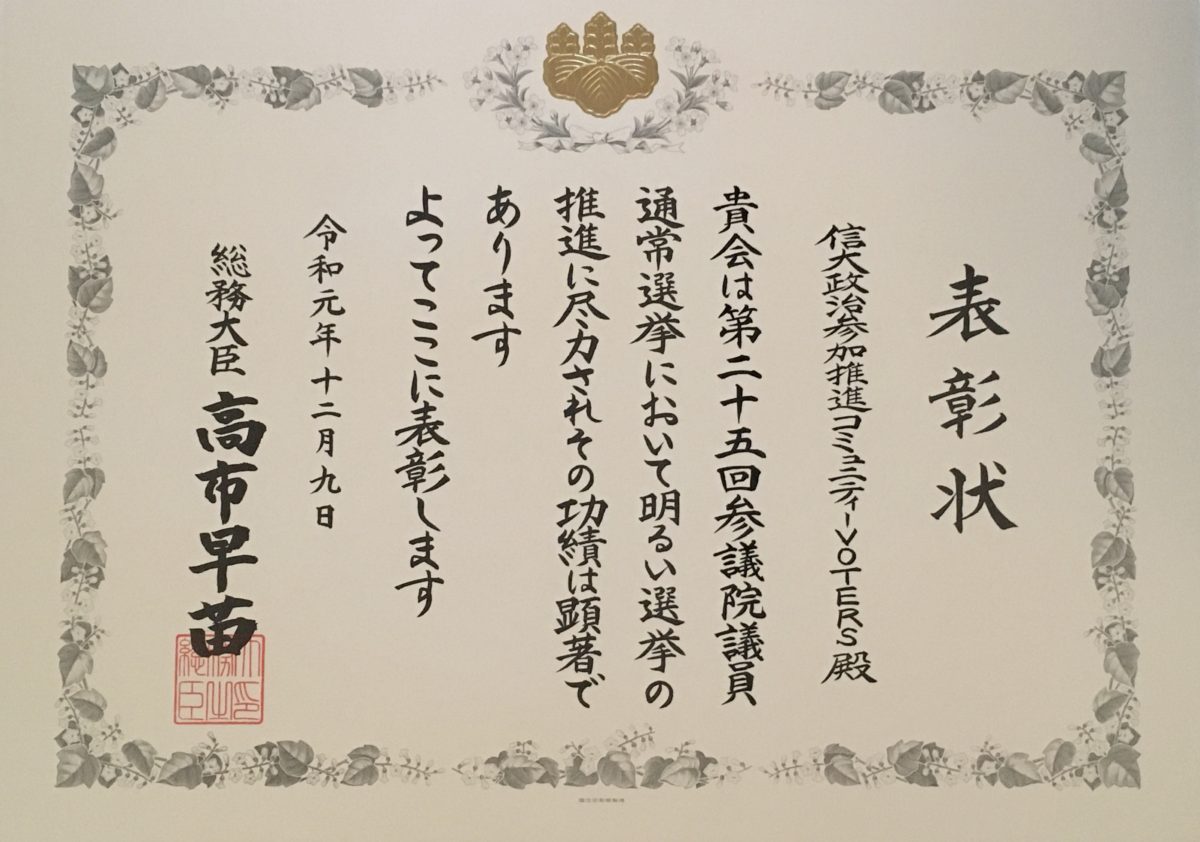 表彰状
信大政治参加推進コミュニティーVOTERS殿
貴会は第二十五回参議院議員
通常選挙において明るい選挙の
推進に尽力されその功績は顕著で
あります
よってここに表彰します
令和元年十二月九日
総務大臣 高市早苗